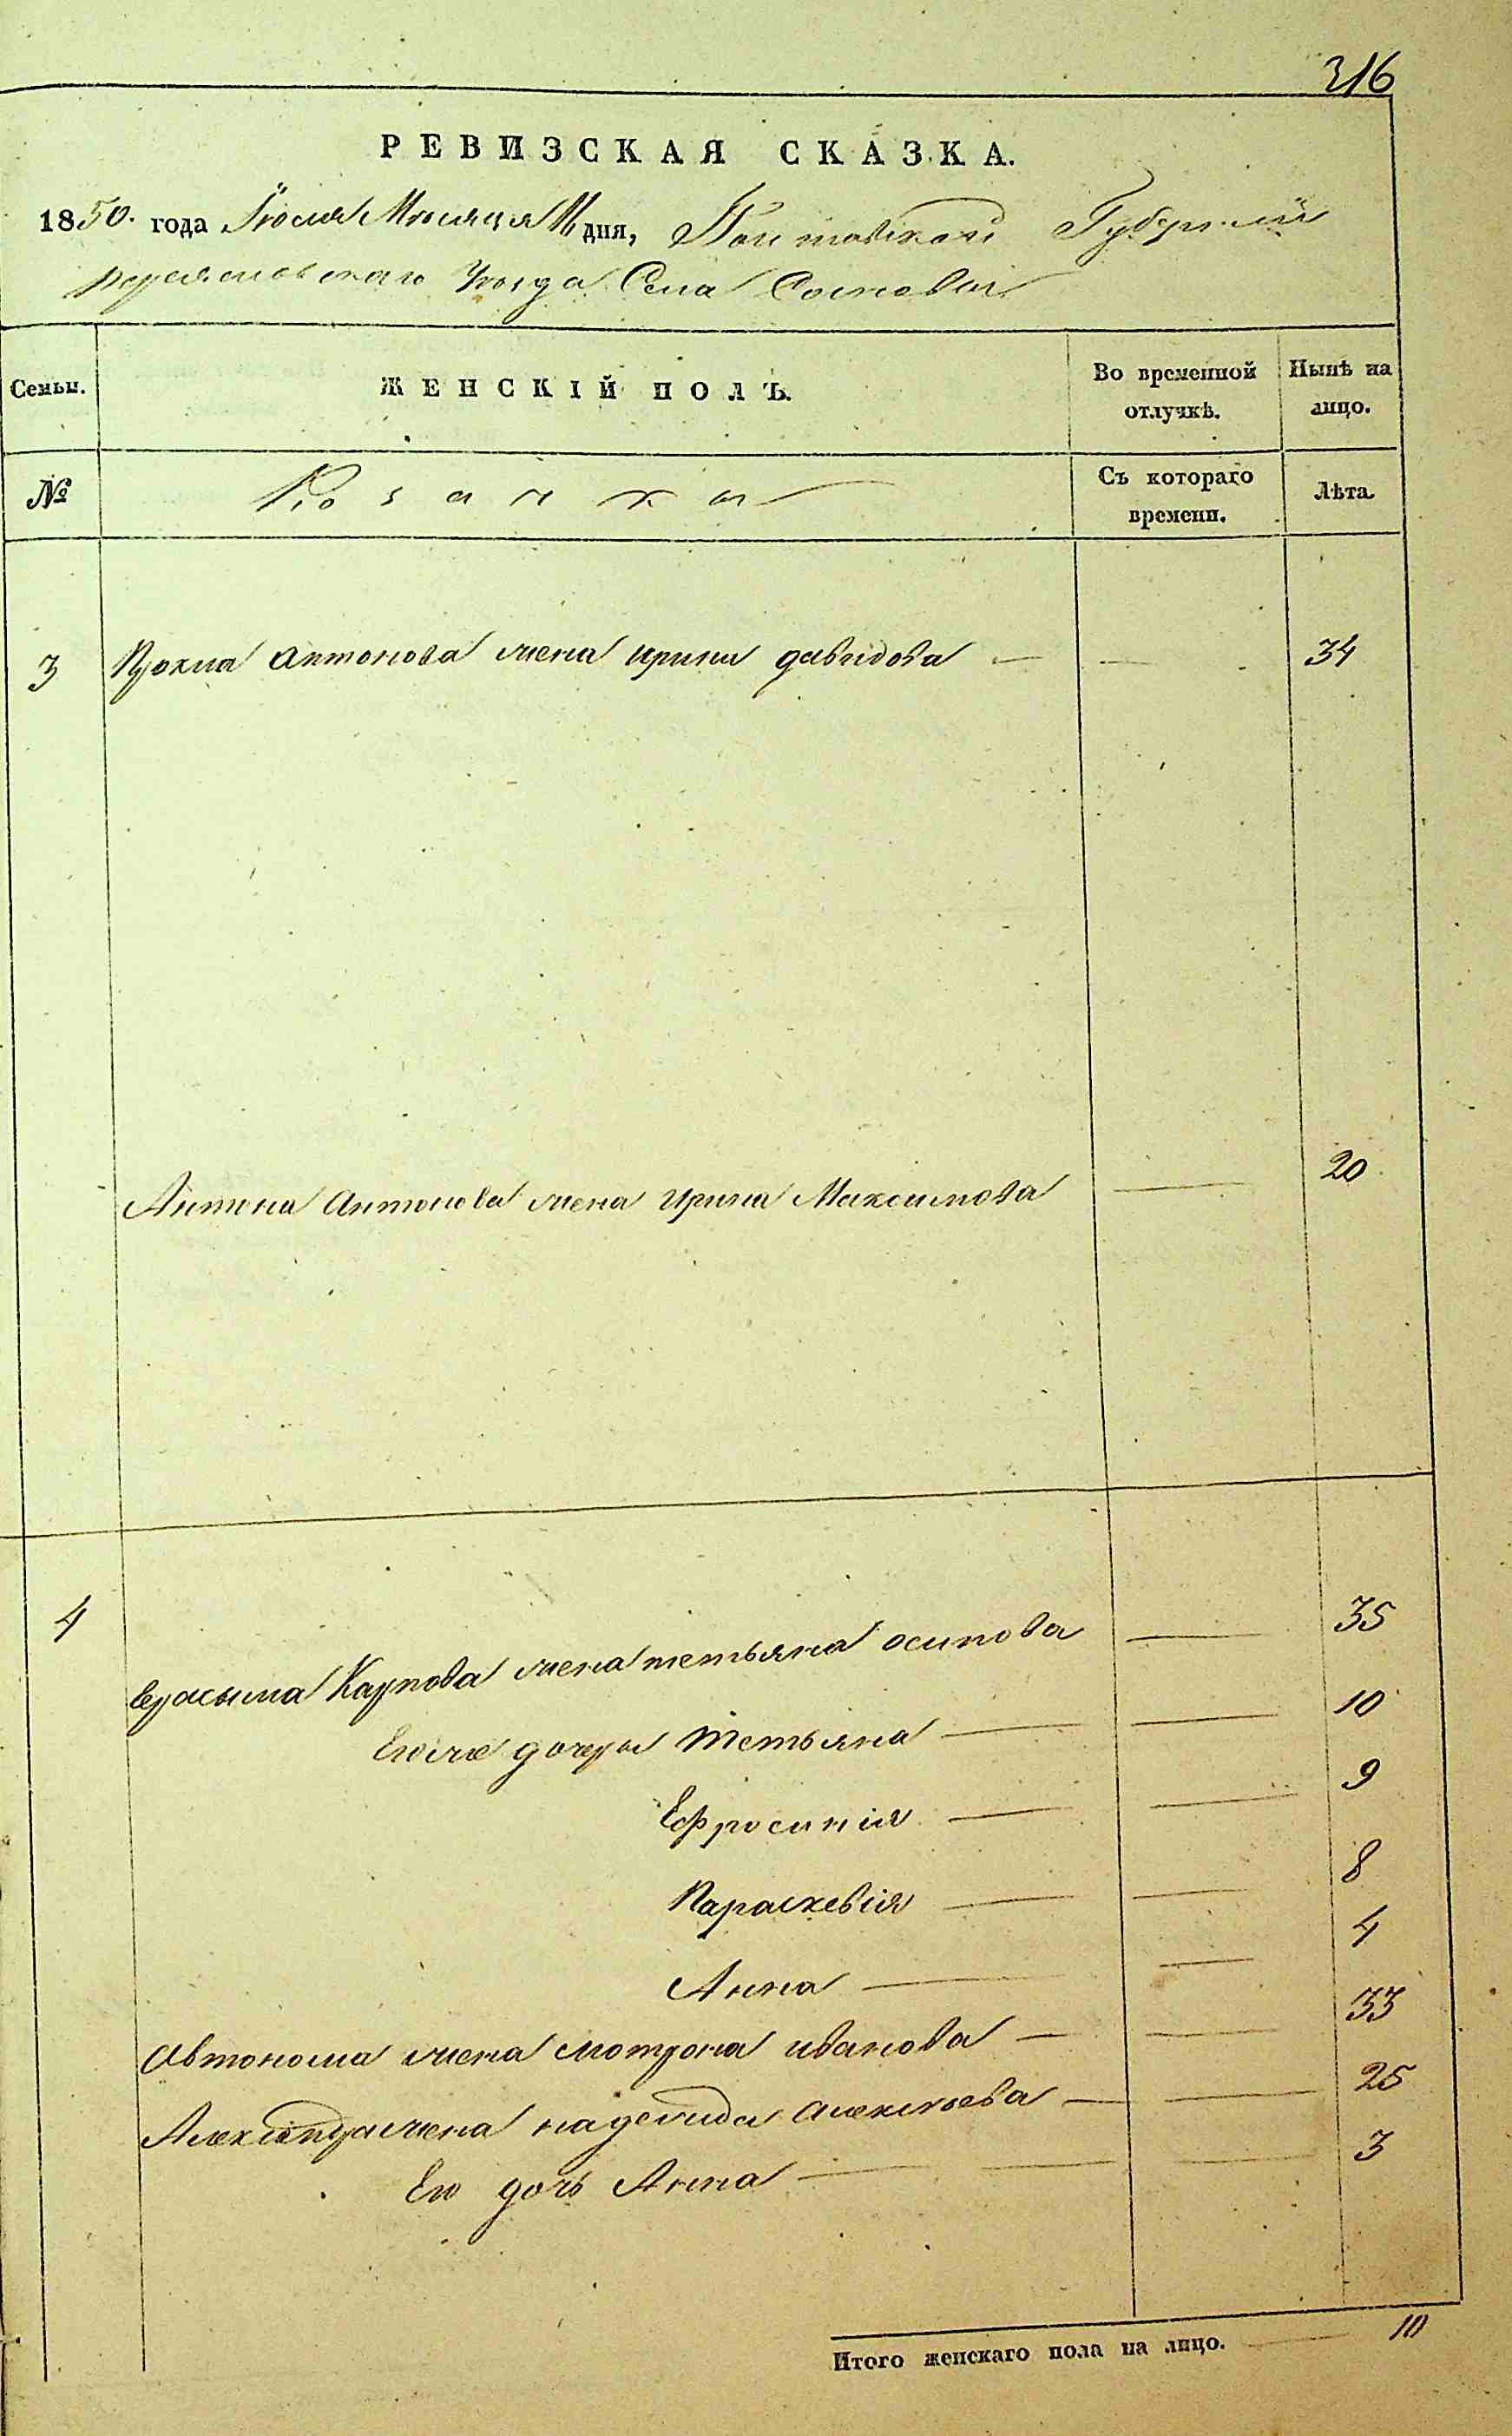 316
РЕВИЗСКАЯ СКАЗКА.
1850. года Июля Месяца 16 дня, Полтавской Губернии
Переяславскаго Уезда Села Сосновы
Семьи. ЖЕНСКІЙ ПОЛЪ. Во временной отлучкѣ. Нынѣ на лицо.
№ Козачки Съ котораго времени. Лѣта.
3 Прокпа Антонова жена Ирина давидова — — 34
Антона Антонова жена Ирина Максимова — 20
4 Карпова жена тетьяна осипова — 35
Егоже дочеры Тетьяна — — 10
Ефросинія — — 9
Параскевія — — 8
Анна — — 4
Автонома жена мотрона иванова — — 33
Александра жена надежида Алексѣева — — 25
Его дочь Анна — — — 3
Итого женскаго пола на лицо. — 10